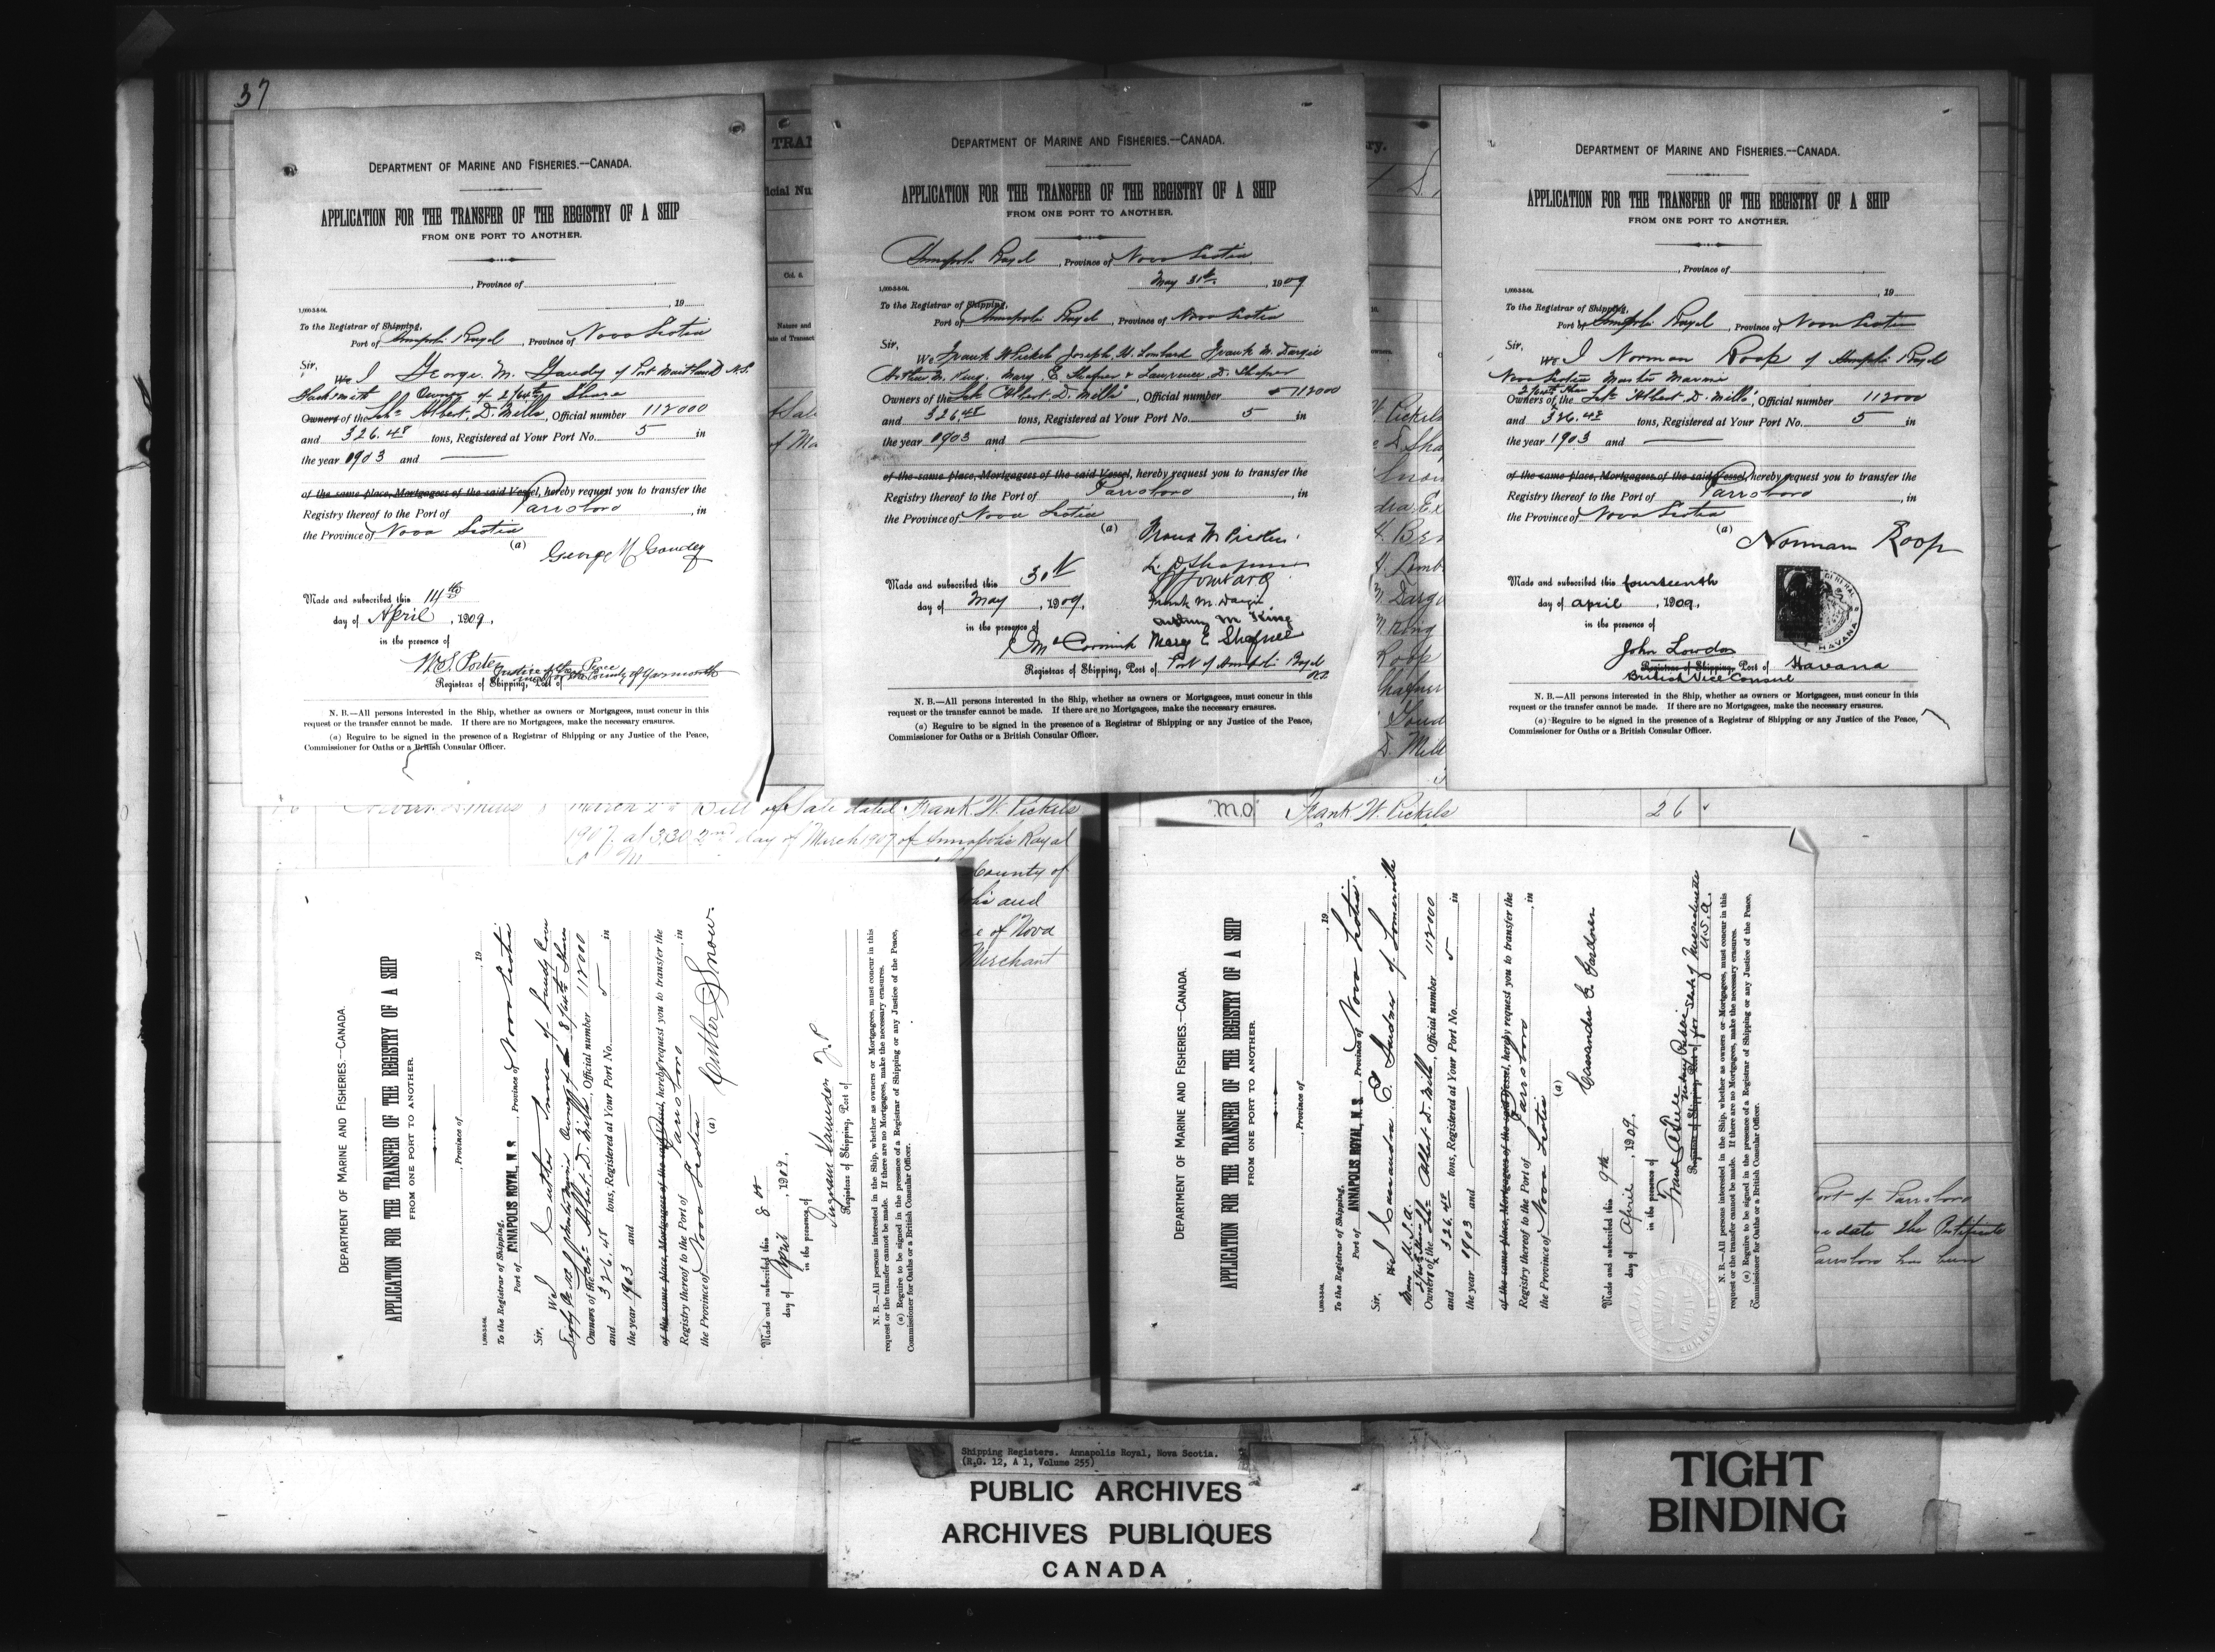 37
DEPARTMENT OF MARINE AND FISHERIES.—CANADA.
APPLICATION FOR THE TRANSFER OF THE REGISTRY OF A SHIP
FROM ONE PORT TO ANOTHER.
, Province of
, 19
To the Registrar of Shipping,
Port of Annapolis Royal, Province of Nova Scotia
Sir,
We I George M. Gaudey of Port Maitland N.S.
Blacksmith Owner of 2/64ths Share
Owners of the Schr Albert D. Mills, Official number 112000
and 326.48 tons, Registered at Your Port No. 5 in
the year 1903 and
of the same place, Mortgagees of the said Vessel, hereby request you to transfer the
Registry thereof to the Port of Parrsboro, in
the Province of Nova Scotia
(a) George M Gaudey
Made and subscribed this 14th
day of April, 1909.
in the presence of
W.S. Porter
Justice of the Peace
Registrar of Shipping, Port of
County of Yarmouth
N. B.—All persons interested in the Ship, whether as owners or Mortgagees, must concur in this
request or the transfer cannot be made. If there are no Mortgagees, make the necessary erasures.
(a) Require to be signed in the presence of a Registrar of Shipping or any Justice of the Peace,
Commissioner for Oaths or a British Consular Officer.
DEPARTMENT OF MARINE AND FISHERIES.—CANADA.
APPLICATION FOR THE TRANSFER OF THE REGISTRY OF A SHIP
FROM ONE PORT TO ANOTHER.
Annapolis Royal, Province of Nova Scotia
May 31st, 1909
To the Registrar of Shipping,
Port of Annapolis Royal, Province of Nova Scotia
Sir,
We Frank W Pickels Joseph H. Lombard Frank M. Dargie
Arthur M. King, Mary E Shafner & Lawrence D. Shafner
Owners of the Schr "Albert D. Mills", Official number 112000
and 326.48 tons, Registered at Your Port No. 5 in
the year 1903 and
of the same place, Mortgagees of the said Vessel, hereby request you to transfer the
Registry thereof to the Port of Parrsboro, in
the Province of Nova Scotia
(a) Frank W Pickels
L. D Shafner
Made and subscribed this 31st
day of May, 1909.
Frank M. Dargie
Arthur M King
in the presence of
McCormick Mary E Shafner
Registrar of Shipping, Port of Port of Annapolis Royal
N. B.—All persons interested in the Ship, whether as owners or Mortgagees, must concur in this
request or the transfer cannot be made. If there are no Mortgagees, make the necessary erasures.
(a) Require to be signed in the presence of a Registrar of Shipping or any Justice of the Peace,
Commissioner for Oaths or a British Consular Officer.
DEPARTMENT OF MARINE AND FISHERIES.—CANADA.
APPLICATION FOR THE TRANSFER OF THE REGISTRY OF A SHIP
FROM ONE PORT TO ANOTHER.
, Province of
, 19
To the Registrar of Shipping,
Port of Annapolis Royal, Province of Nova Scotia
Sir,
We I Norman Roop of Annapolis Royal
Nova Scotia Master Mariner
Owners of the Schr "Albert D. Mills", Official number 112000
and 326.48 tons, Registered at Your Port No. 5 in
the year 1903 and
of the same place, Mortgagees of the said Vessel, hereby request you to transfer the
Registry thereof to the Port of Parrsboro, in
the Province of Nova Scotia
(a) Norman Roop
Made and subscribed this fourteenth
day of april, 1909.
in the presence of
HAVANA
John Lowdon
Registrar of Shipping, Port of Havana
British Vice Consul
N. B.—All persons interested in the Ship, whether as owners or Mortgagees, must concur in this
request or the transfer cannot be made. If there are no Mortgagees, make the necessary erasures.
(a) Require to be signed in the presence of a Registrar of Shipping or any Justice of the Peace,
Commissioner for Oaths or a British Consular Officer.
Bill of Sale dated Frank W. Pickels
1907, at 3.30 2nd day of March 1907 of Annapolis Royal
County of
and
of Nova
Merchant
"M.O" Frank W. Pickels 26
DEPARTMENT OF MARINE AND FISHERIES.—CANADA.
APPLICATION FOR THE TRANSFER OF THE REGISTRY OF A SHIP
FROM ONE PORT TO ANOTHER.
, Province of
, 19
To the Registrar of Shipping,
Port of ANNAPOLIS ROYAL, N. S., Province of Nova Scotia
Sir,
We I Cutler Snow of Sandy Cove
Digby Co N.S. Master Mariner Owner of 8/64ths Shares
Owners of the Schr Albert D. Mills, Official number 112000
and 326.48 tons, Registered at Your Port No. 5 in
the year 1903 and
of the same place, Mortgagees of the said Vessel, hereby request you to transfer the
Registry thereof to the Port of Parrsboro, in
the Province of Nova Scotia
(a) Cutler Snow.
Made and subscribed this 8th
day of April, 1909.
in the presence of
Saunders J.P
Registrar of Shipping, Port of
N. B.—All persons interested in the Ship, whether as owners or Mortgagees, must concur in this
request or the transfer cannot be made. If there are no Mortgagees, make the necessary erasures.
(a) Require to be signed in the presence of a Registrar of Shipping or any Justice of the Peace,
Commissioner for Oaths or a British Consular Officer.
DEPARTMENT OF MARINE AND FISHERIES.—CANADA.
APPLICATION FOR THE TRANSFER OF THE REGISTRY OF A SHIP
FROM ONE PORT TO ANOTHER.
, Province of
, 19
To the Registrar of Shipping,
Port of ANNAPOLIS ROYAL, N. S., Province of Nova Scotia.
Sir,
We I Cassandra E. Gardner of Somerville
Mass U.S.A.
Owners of the Schr Albert D. Mills, Official number 112000
and 326.48 tons, Registered at Your Port No. 5 in
the year 1903 and
of the same place, Mortgagees of the said Vessel, hereby request you to transfer the
Registry thereof to the Port of Parrsboro, in
the Province of Nova Scotia
(a) Cassandra E. Gardner
Made and subscribed this 9th
day of April, 1909.
in the presence of
Notary Public
Registrar of Shipping, Port of for State of Massachusetts
U.S.A.
N. B.—All persons interested in the Ship, whether as owners or Mortgagees, must concur in this
request or the transfer cannot be made. If there are no Mortgagees, make the necessary erasures.
(a) Require to be signed in the presence of a Registrar of Shipping or any Justice of the Peace,
Commissioner for Oaths or a British Consular Officer.
Port of Parrsboro
date the Certificate
Parrsboro has been
Shipping Registers. Annapolis Royal, Nova Scotia.
(R.G. 12, A 1, Volume 255)
PUBLIC ARCHIVES
ARCHIVES PUBLIQUES
CANADA
TIGHT
BINDING